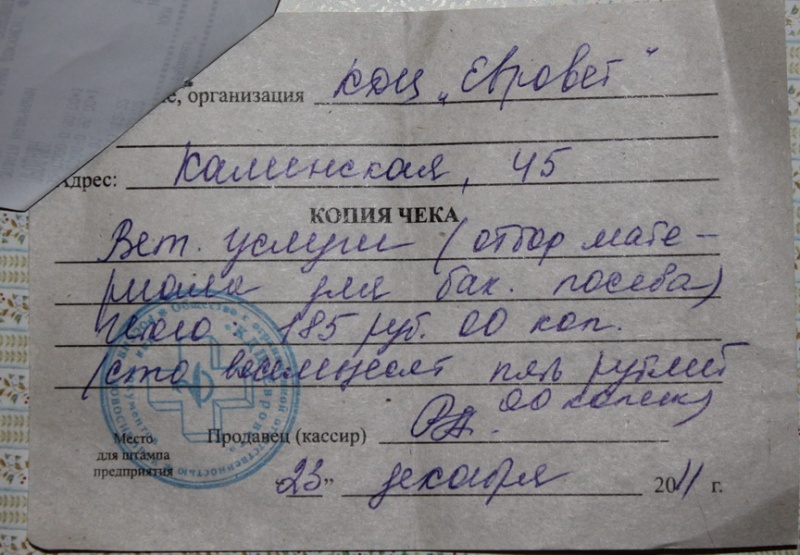 организация КДЦ „Евровет"
Адрес: Каменская, 45
КОПИЯ ЧЕКА
Вет. услуги (отбор мате-
риала для бак. посева)
Итого 185 руб. 00 коп.
(сто восемьдесят пять рублей
00 копеек)
Продавец (кассир)
Место
для штампа
предприятия
"23" декабря 2011 г.